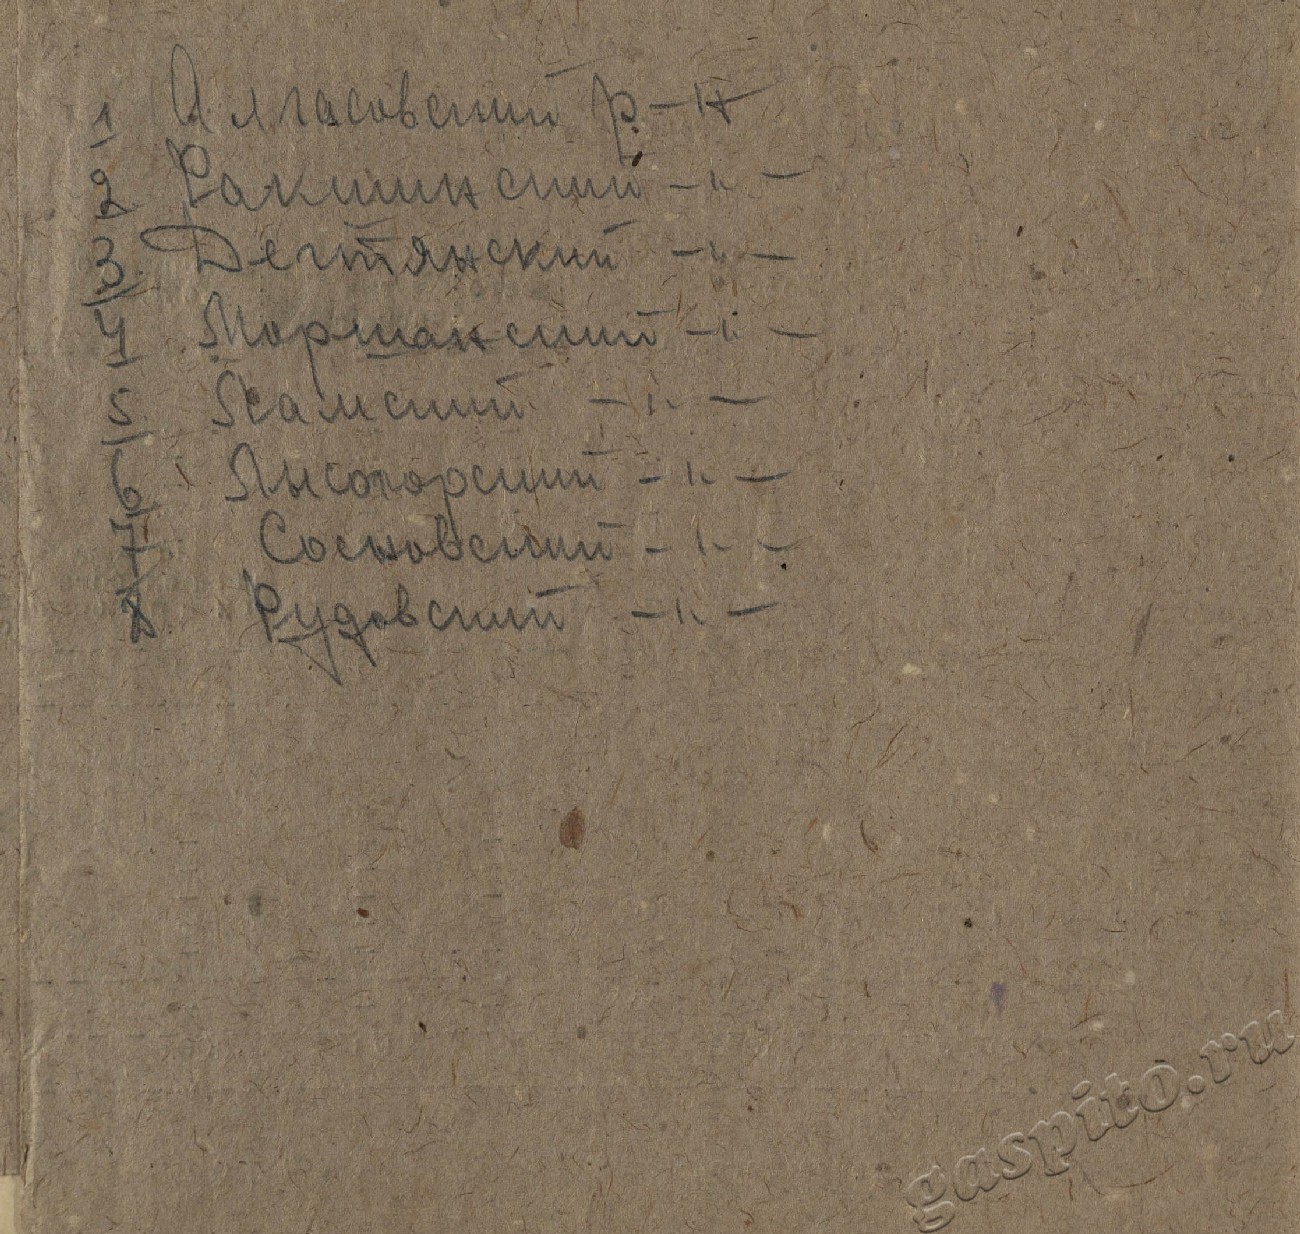 1 Алгасовский р-н
2 Ракшинский -"-
3 Дегтянский -"-
4 Моршанский -"-
5 Ламский -"-
6 Лысогорский -"-
7 Сосновский -"-
8 Рудовский -"-
gaspito.ru